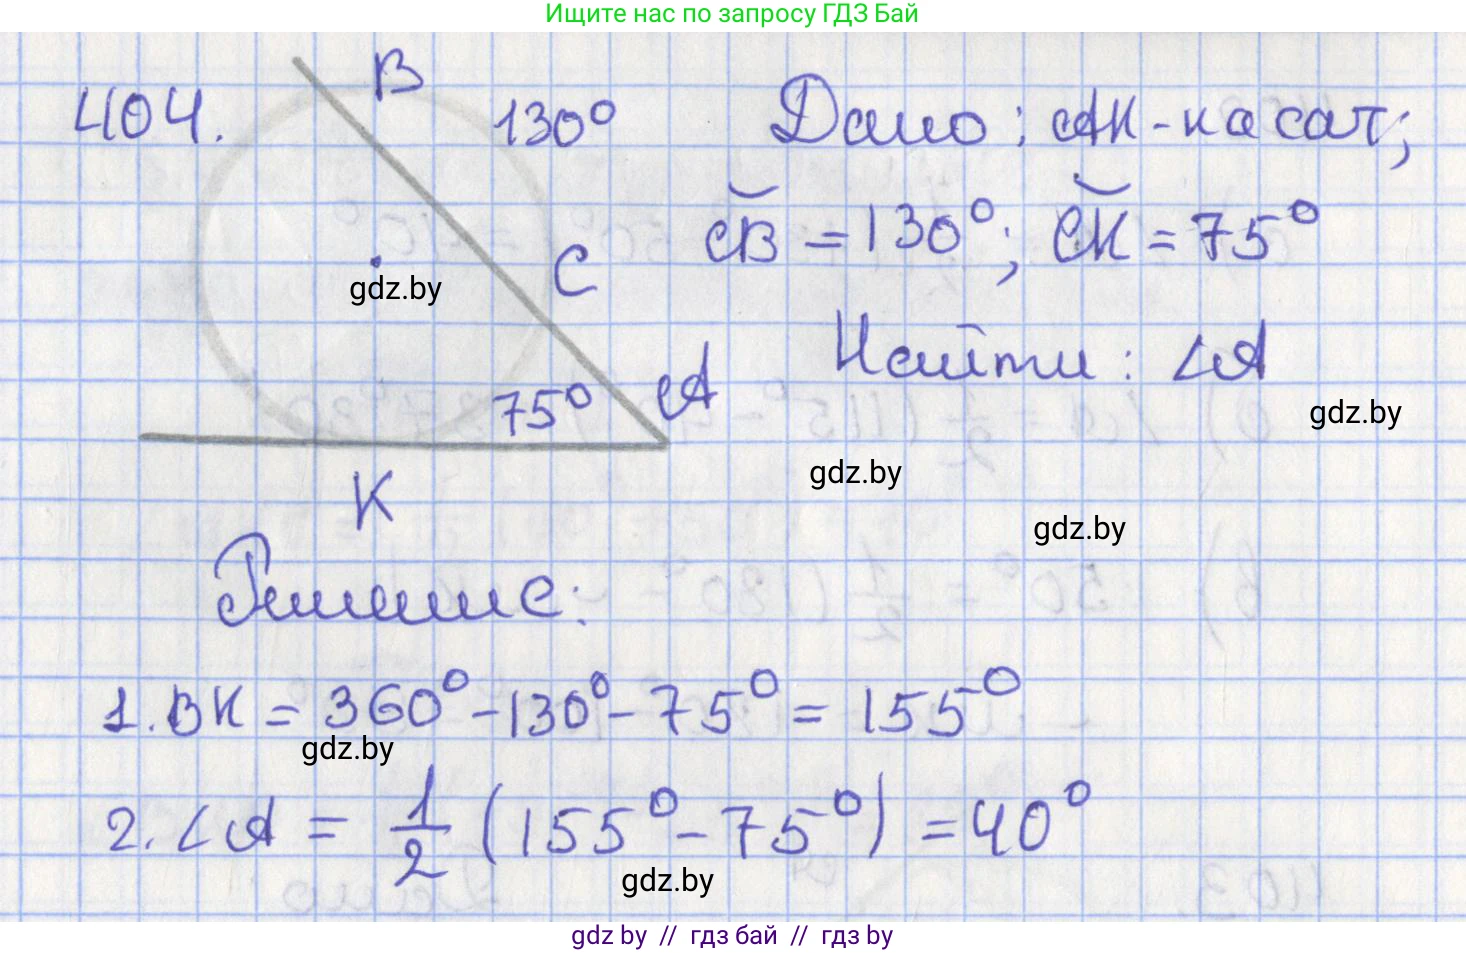 Ищите нас по запросу ГДЗ Бай
404.
B
130°
C
A
75°
K
gdz.by
Дано: AK-касат;
CB = 130°; CK = 75°
Найти: ∠A
gdz.by
gdz.by
gdz.by
Решение:
1. BK = 360° - 130° - 75° = 155°
gdz.by
2. ∠A = 1/2 (155° - 75°) = 40°
gdz.by
gdz by // гдз бай // гдз by